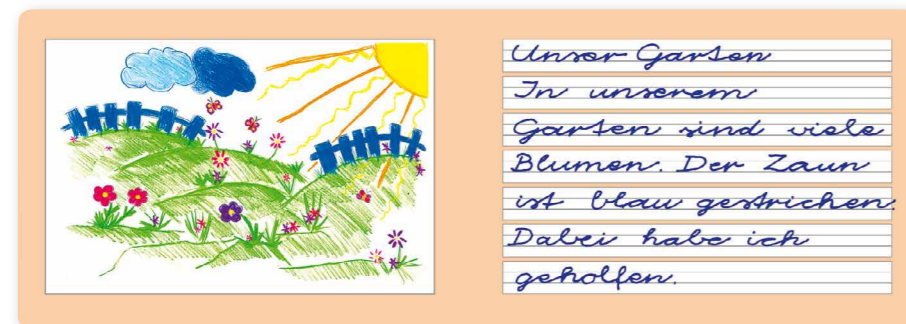 Unser Garten
In unserem
Garten sind viele
Blumen. Der Zaun
ist blau gestrichen.
Dabei habe ich
geholfen.